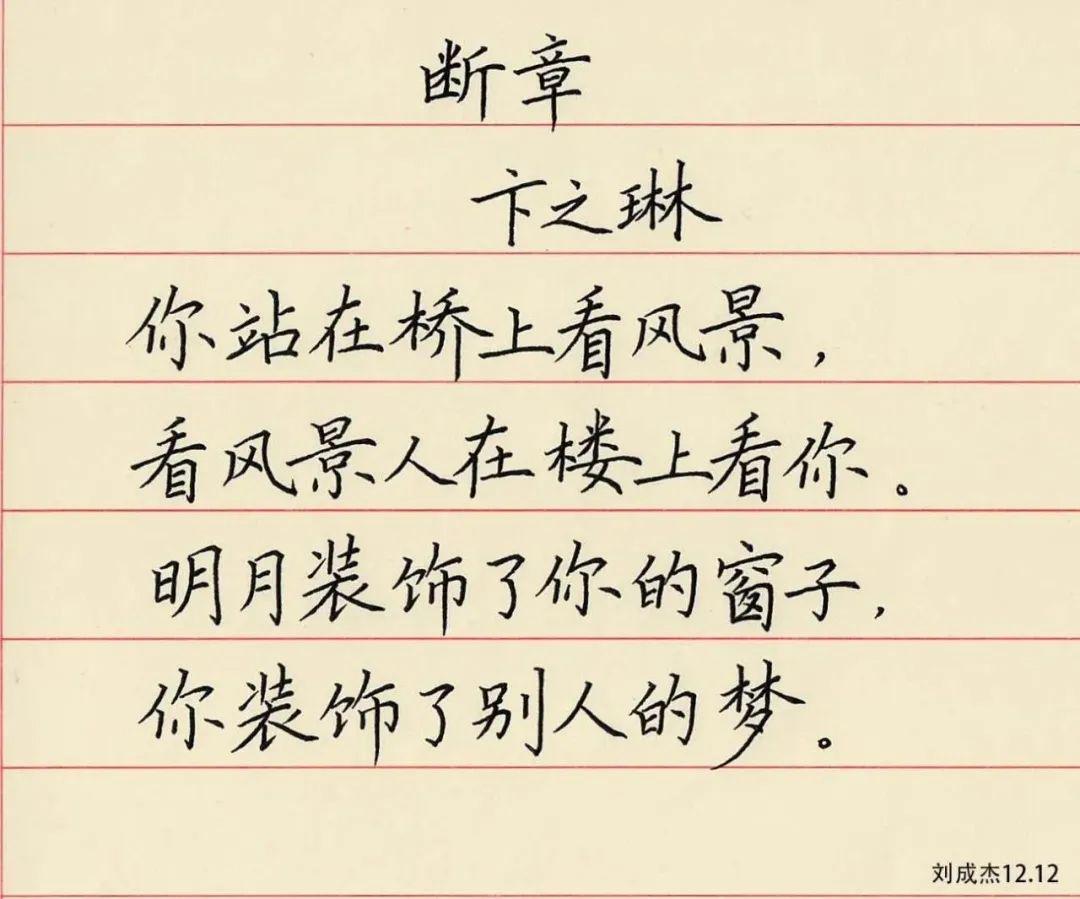 断章
卞之琳
你站在桥上看风景，
看风景人在楼上看你。
明月装饰了你的窗子，
你装饰了别人的梦。
刘成杰12.12